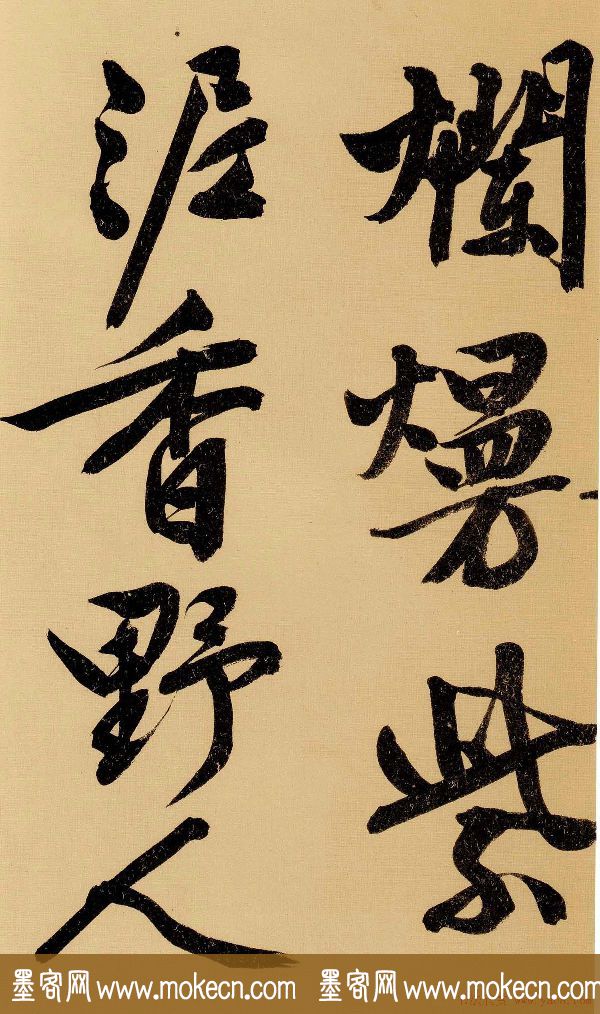 爛熳紫
泥香野人
墨客网 www.mokecn.com 墨客网 www.mokecn.com